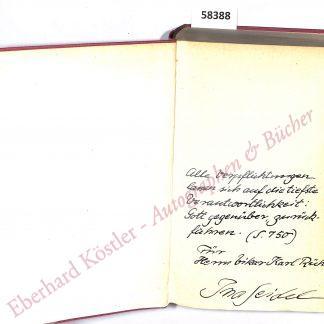 58388
Eberhard Köstler - Autographen & Bücher
Alle Verpflichtungen
lassen sich auf die tiefste
Verantwortlichkeit:
Gott gegenüber, zurück-
führen. (S. 750)
Für
Herrn Karl
Ina Seidel